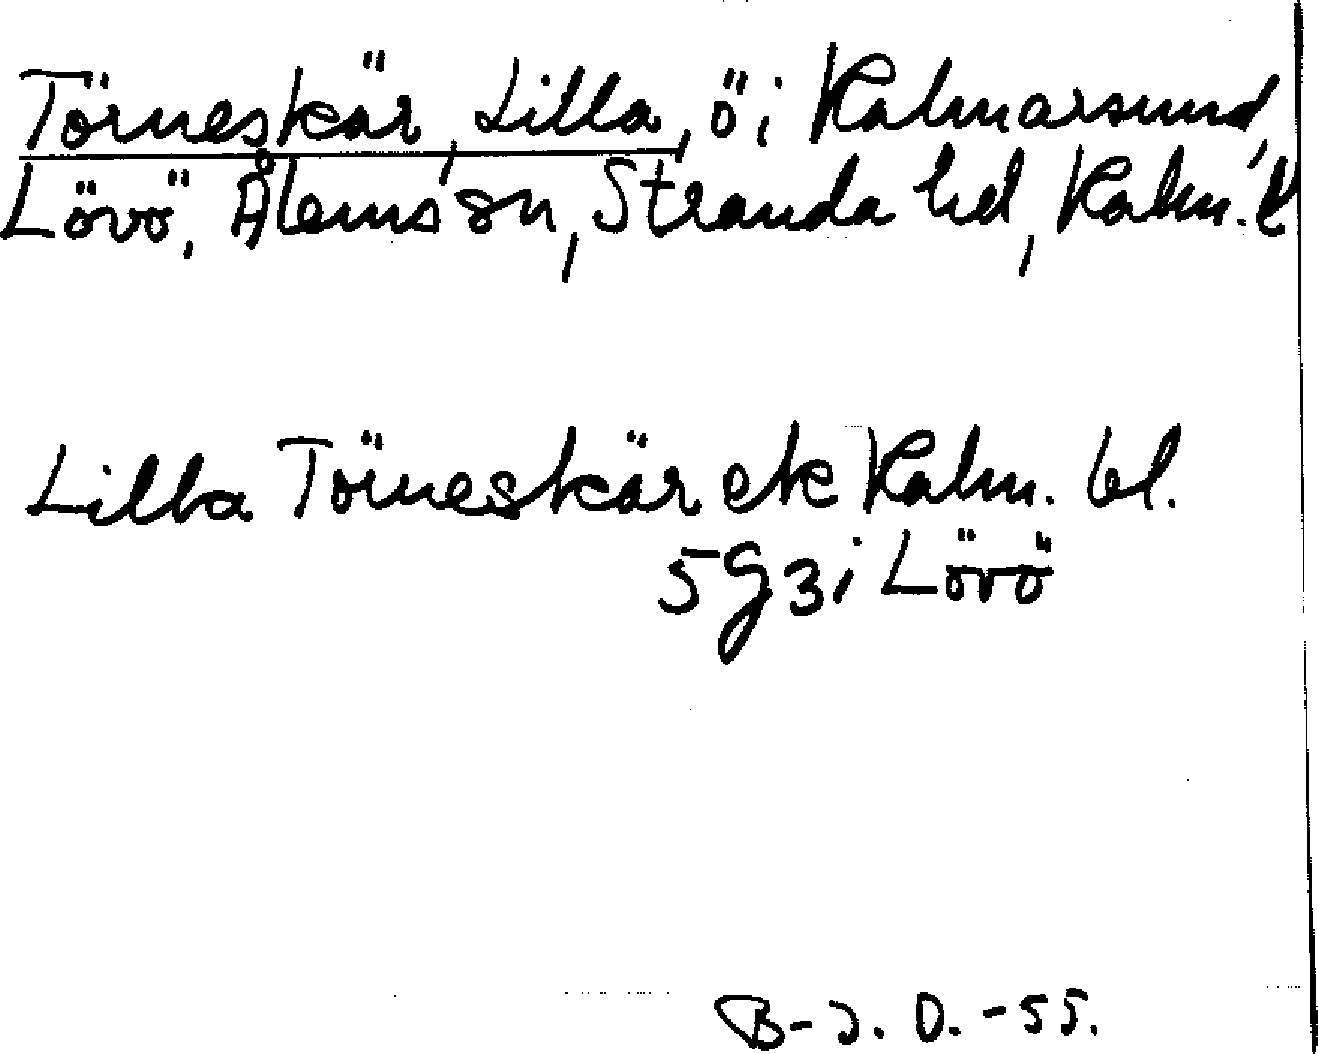 Törneskär, Lilla, ö i Kalmarsund,
Lövö, Ålems sn, Stranda hd, Kalm. l
Lilla Törneskär ek Kalm. bl.
5 g 3 i Lövö
B-J. O. -55.